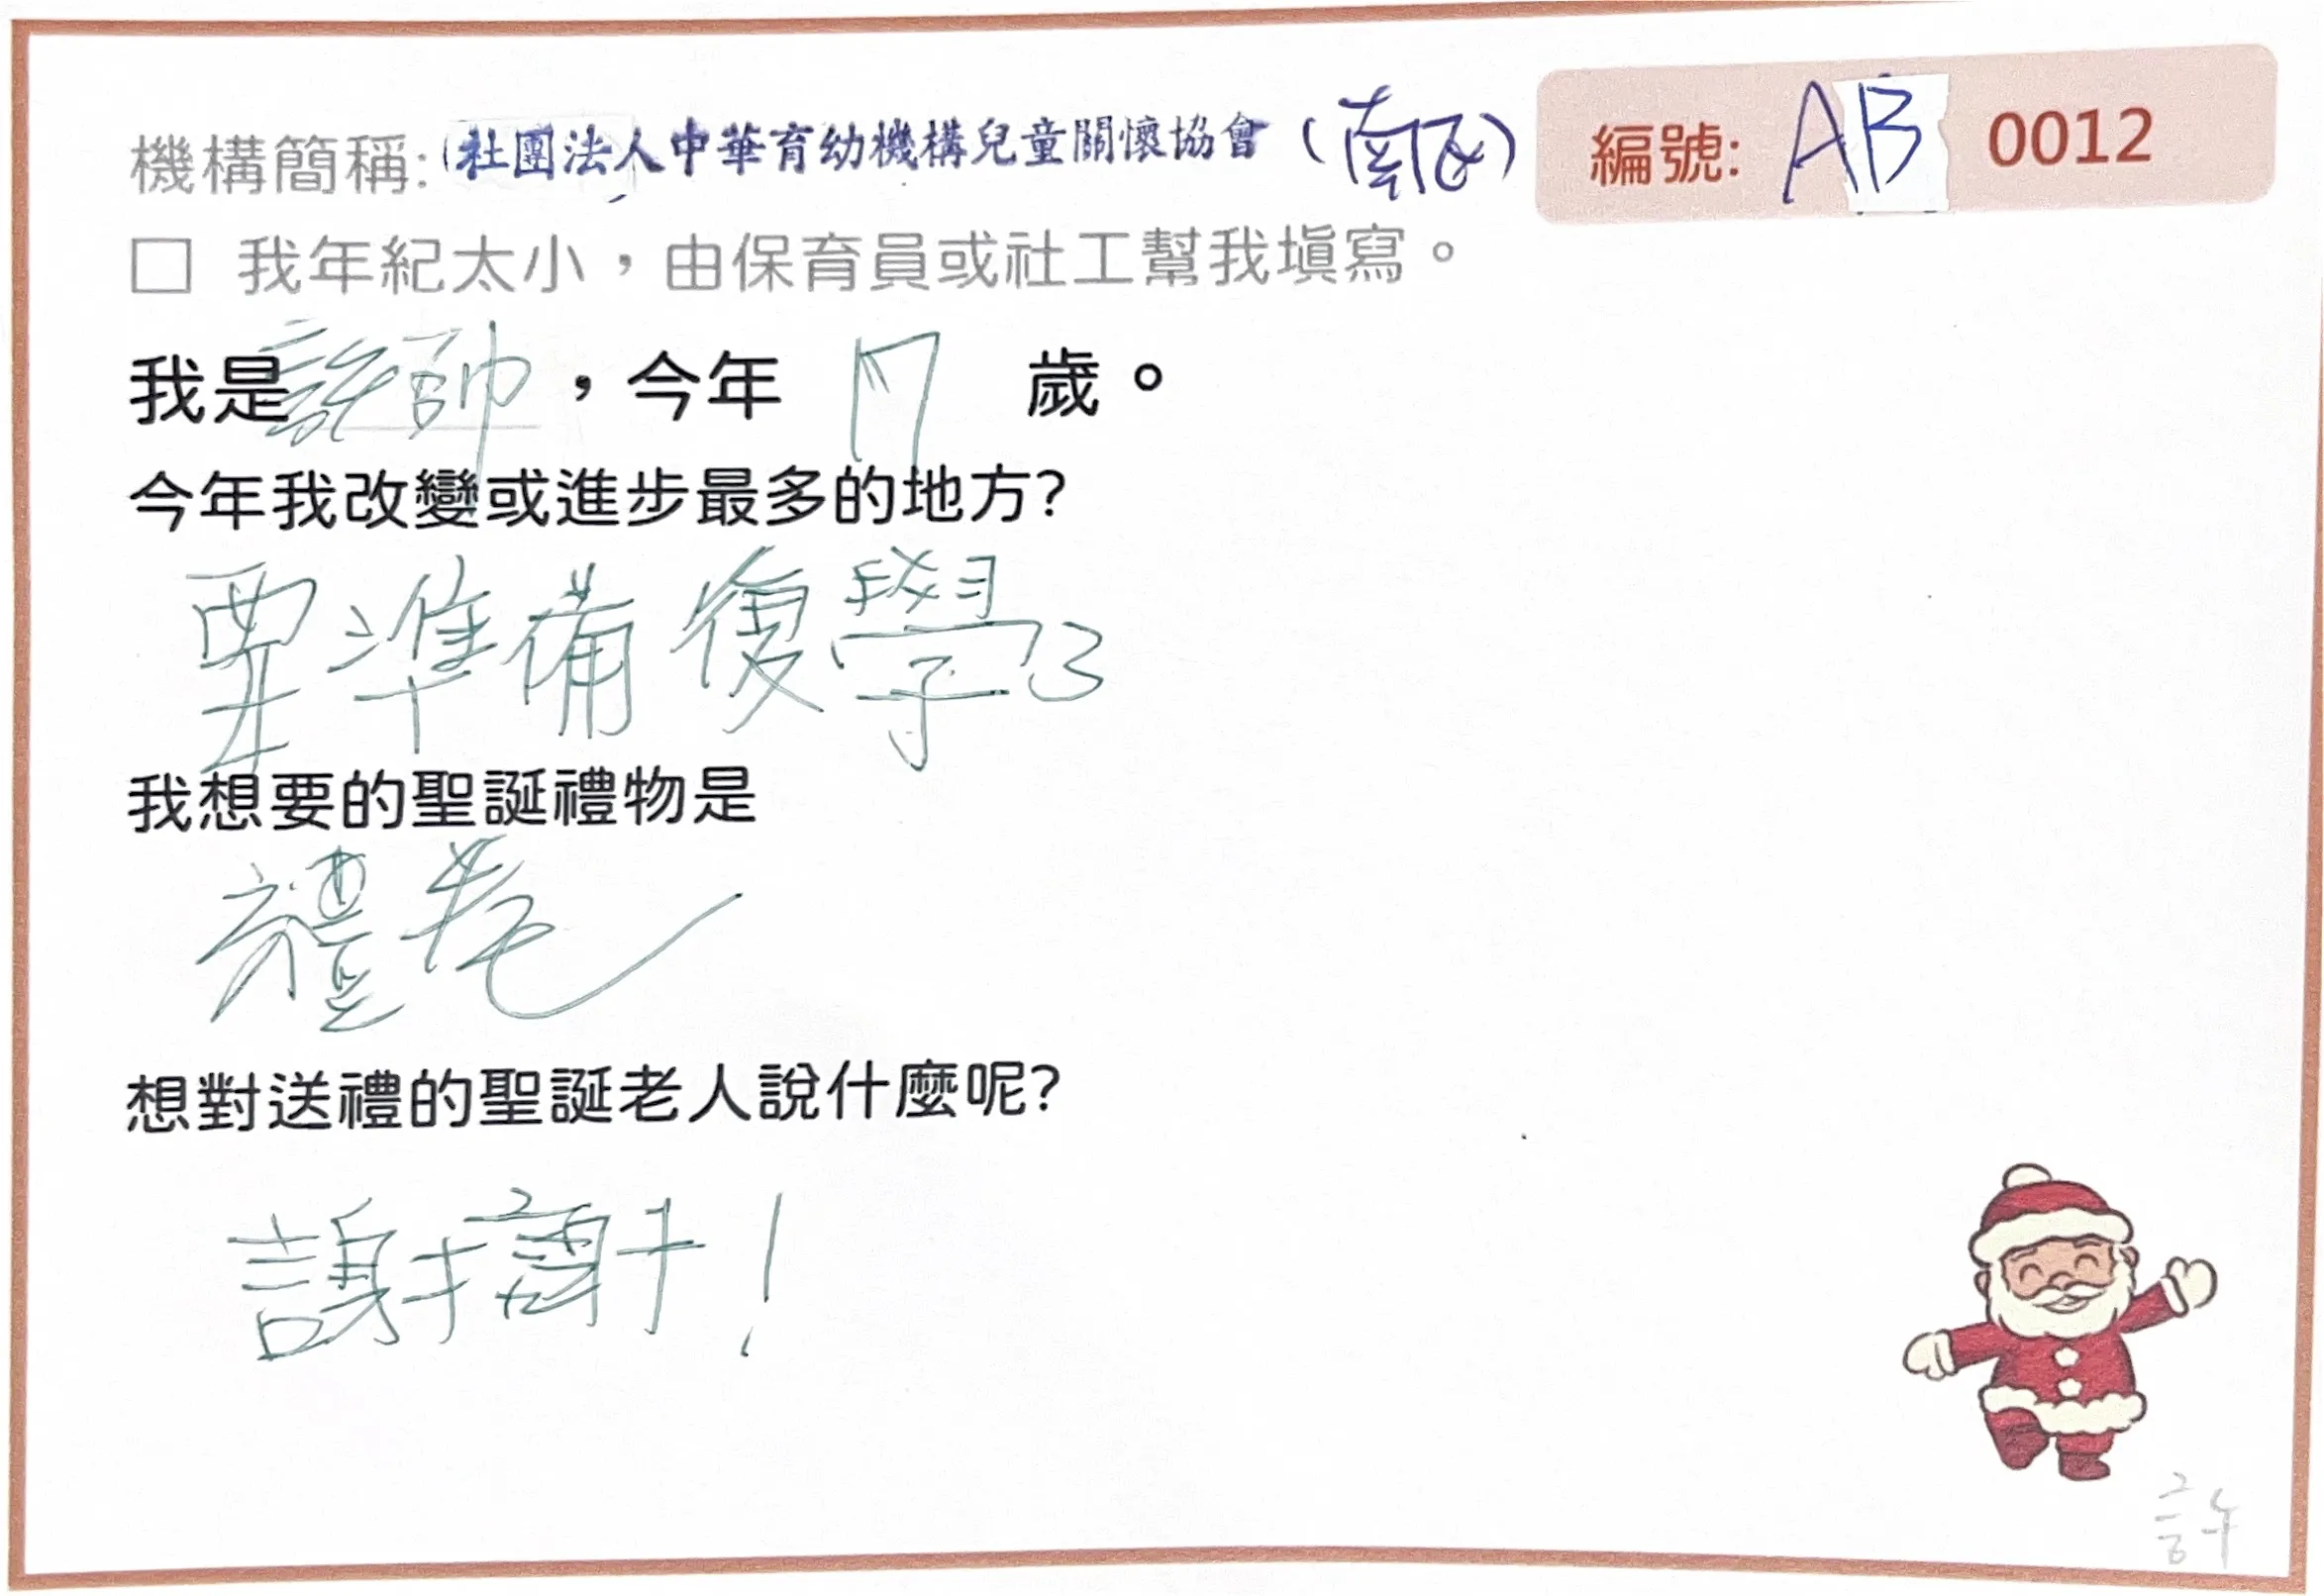 機構簡稱: 社團法人中華育幼機構兒童關懷協會 (南區) 編號: AB 0012
□ 我年紀太小，由保育員或社工幫我填寫。
我是 帥，今年 17 歲。
今年我改變或進步最多的地方?
要準備復學了
我想要的聖誕禮物是
禮卷
想對送禮的聖誕老人說什麼呢?
謝謝!
許